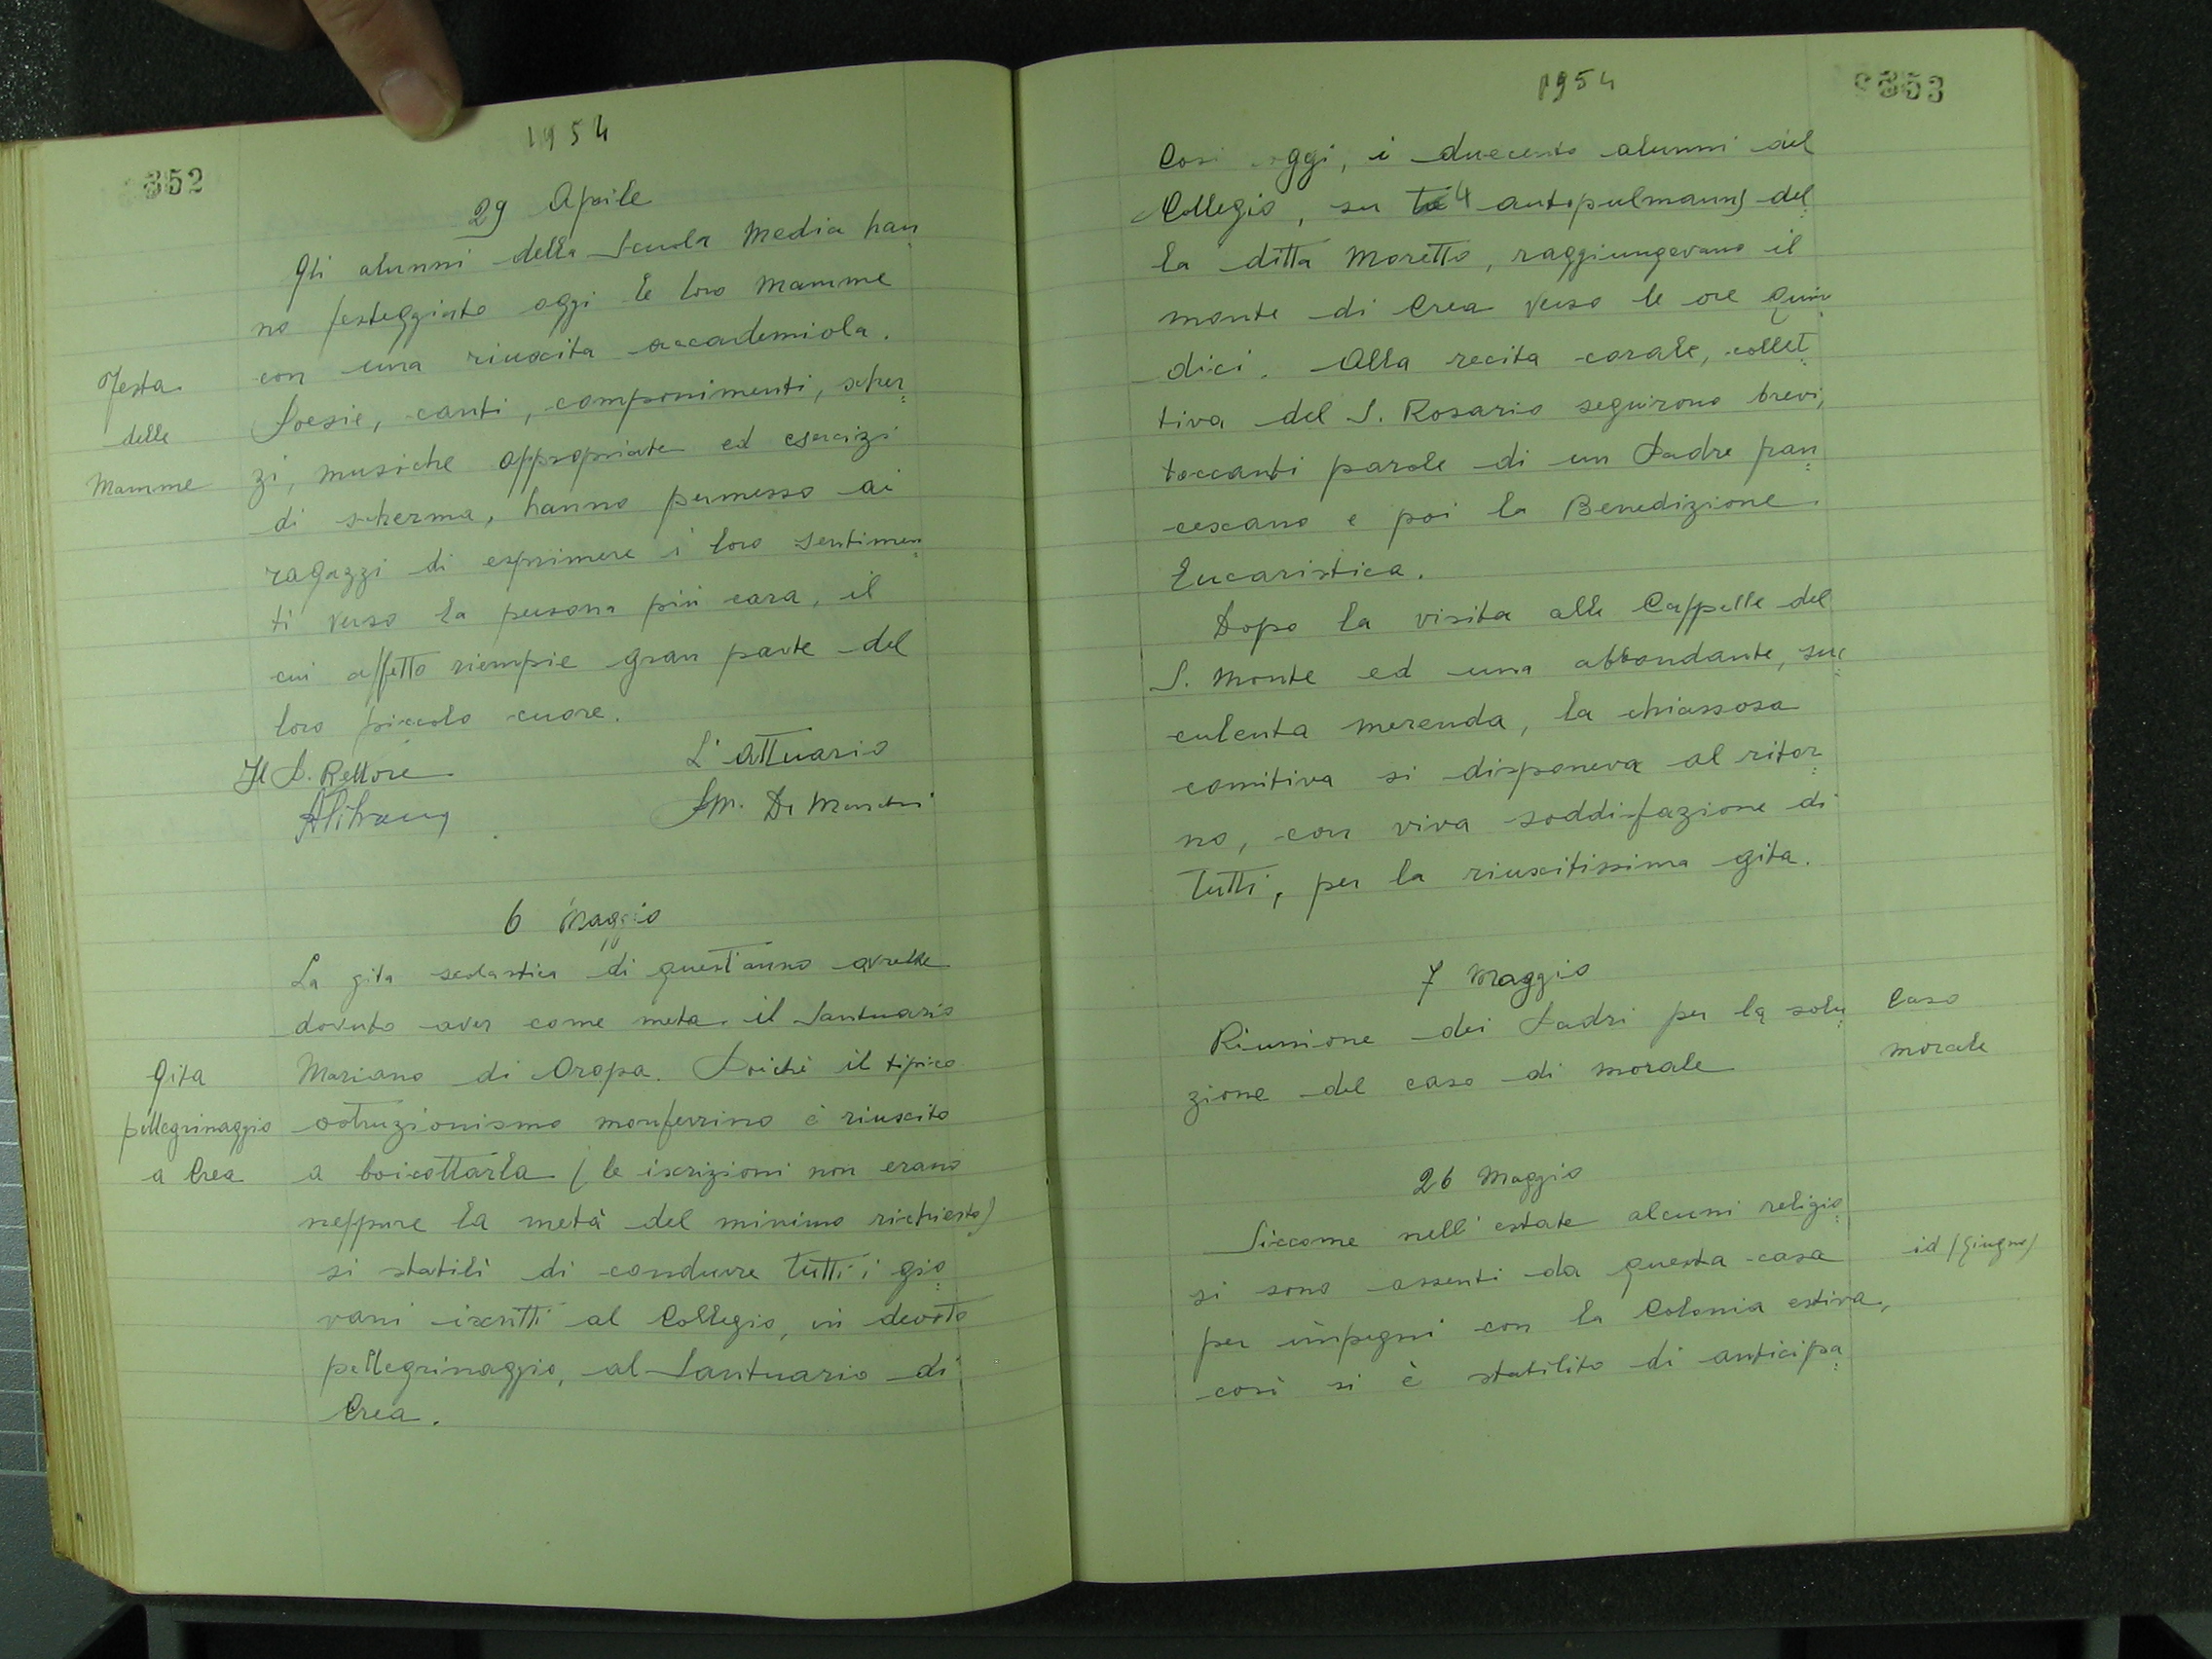 352
1954
29 Aprile
Gli alunni della Scuola Media han
no festeggiato oggi le loro Mamme
con una riuscita accademiola.
Festa
delle
Mamme
Poesie, canti, componimenti, scher
zi, musiche appropriate ed esercizi
di scherma, hanno permesso ai
ragazzi di esprimere i loro sentimen
ti verso la persona più cara, il
cui affetto riempie gran parte del
loro piccolo cuore.
Il P. Rettore
L'Attuario
6 Maggio
La gita scolastica di quest'anno avrebbe
dovuto aver come meta il Santuario
Gita
pellegrinaggio
a Crea
Mariano di Oropa. Poiché il tipico
ostruzionismo monferrino è riuscito
a boicottarla (le iscrizioni non erano
neppure la metà del minimo richiesto)
si stabilì di condurre tutti i gio
vani iscritti al Collegio, in devoto
pellegrinaggio, al Santuario di
Crea.
1954
353
Così oggi, i duecento alunni del
Collegio, su 4 autopulmanns del
la ditta Moretto, raggiungevano il
monte di Crea verso le ore quin
dici. Alla recita corale, collet
tiva del S. Rosario seguirono brevi,
toccanti parole di un Padre fran
cescano e poi la Benedizione
Eucaristica.
Dopo la visita alle Cappelle del
S. Monte ed una abbondante, suc
culenta merenda, la chiassosa
comitiva si disponeva al ritor
no, con viva soddisfazione di
tutti, per la riuscitissima gita.
7 Maggio
Riunione dei Padri per la solu
zione del caso di morale
Caso
morale
26 Maggio
Siccome nell'estate alcuni religio
si sono assenti da questa casa
per impegni con la Colonia estiva,
così si è stabilito di anticipa
id (Giugno)